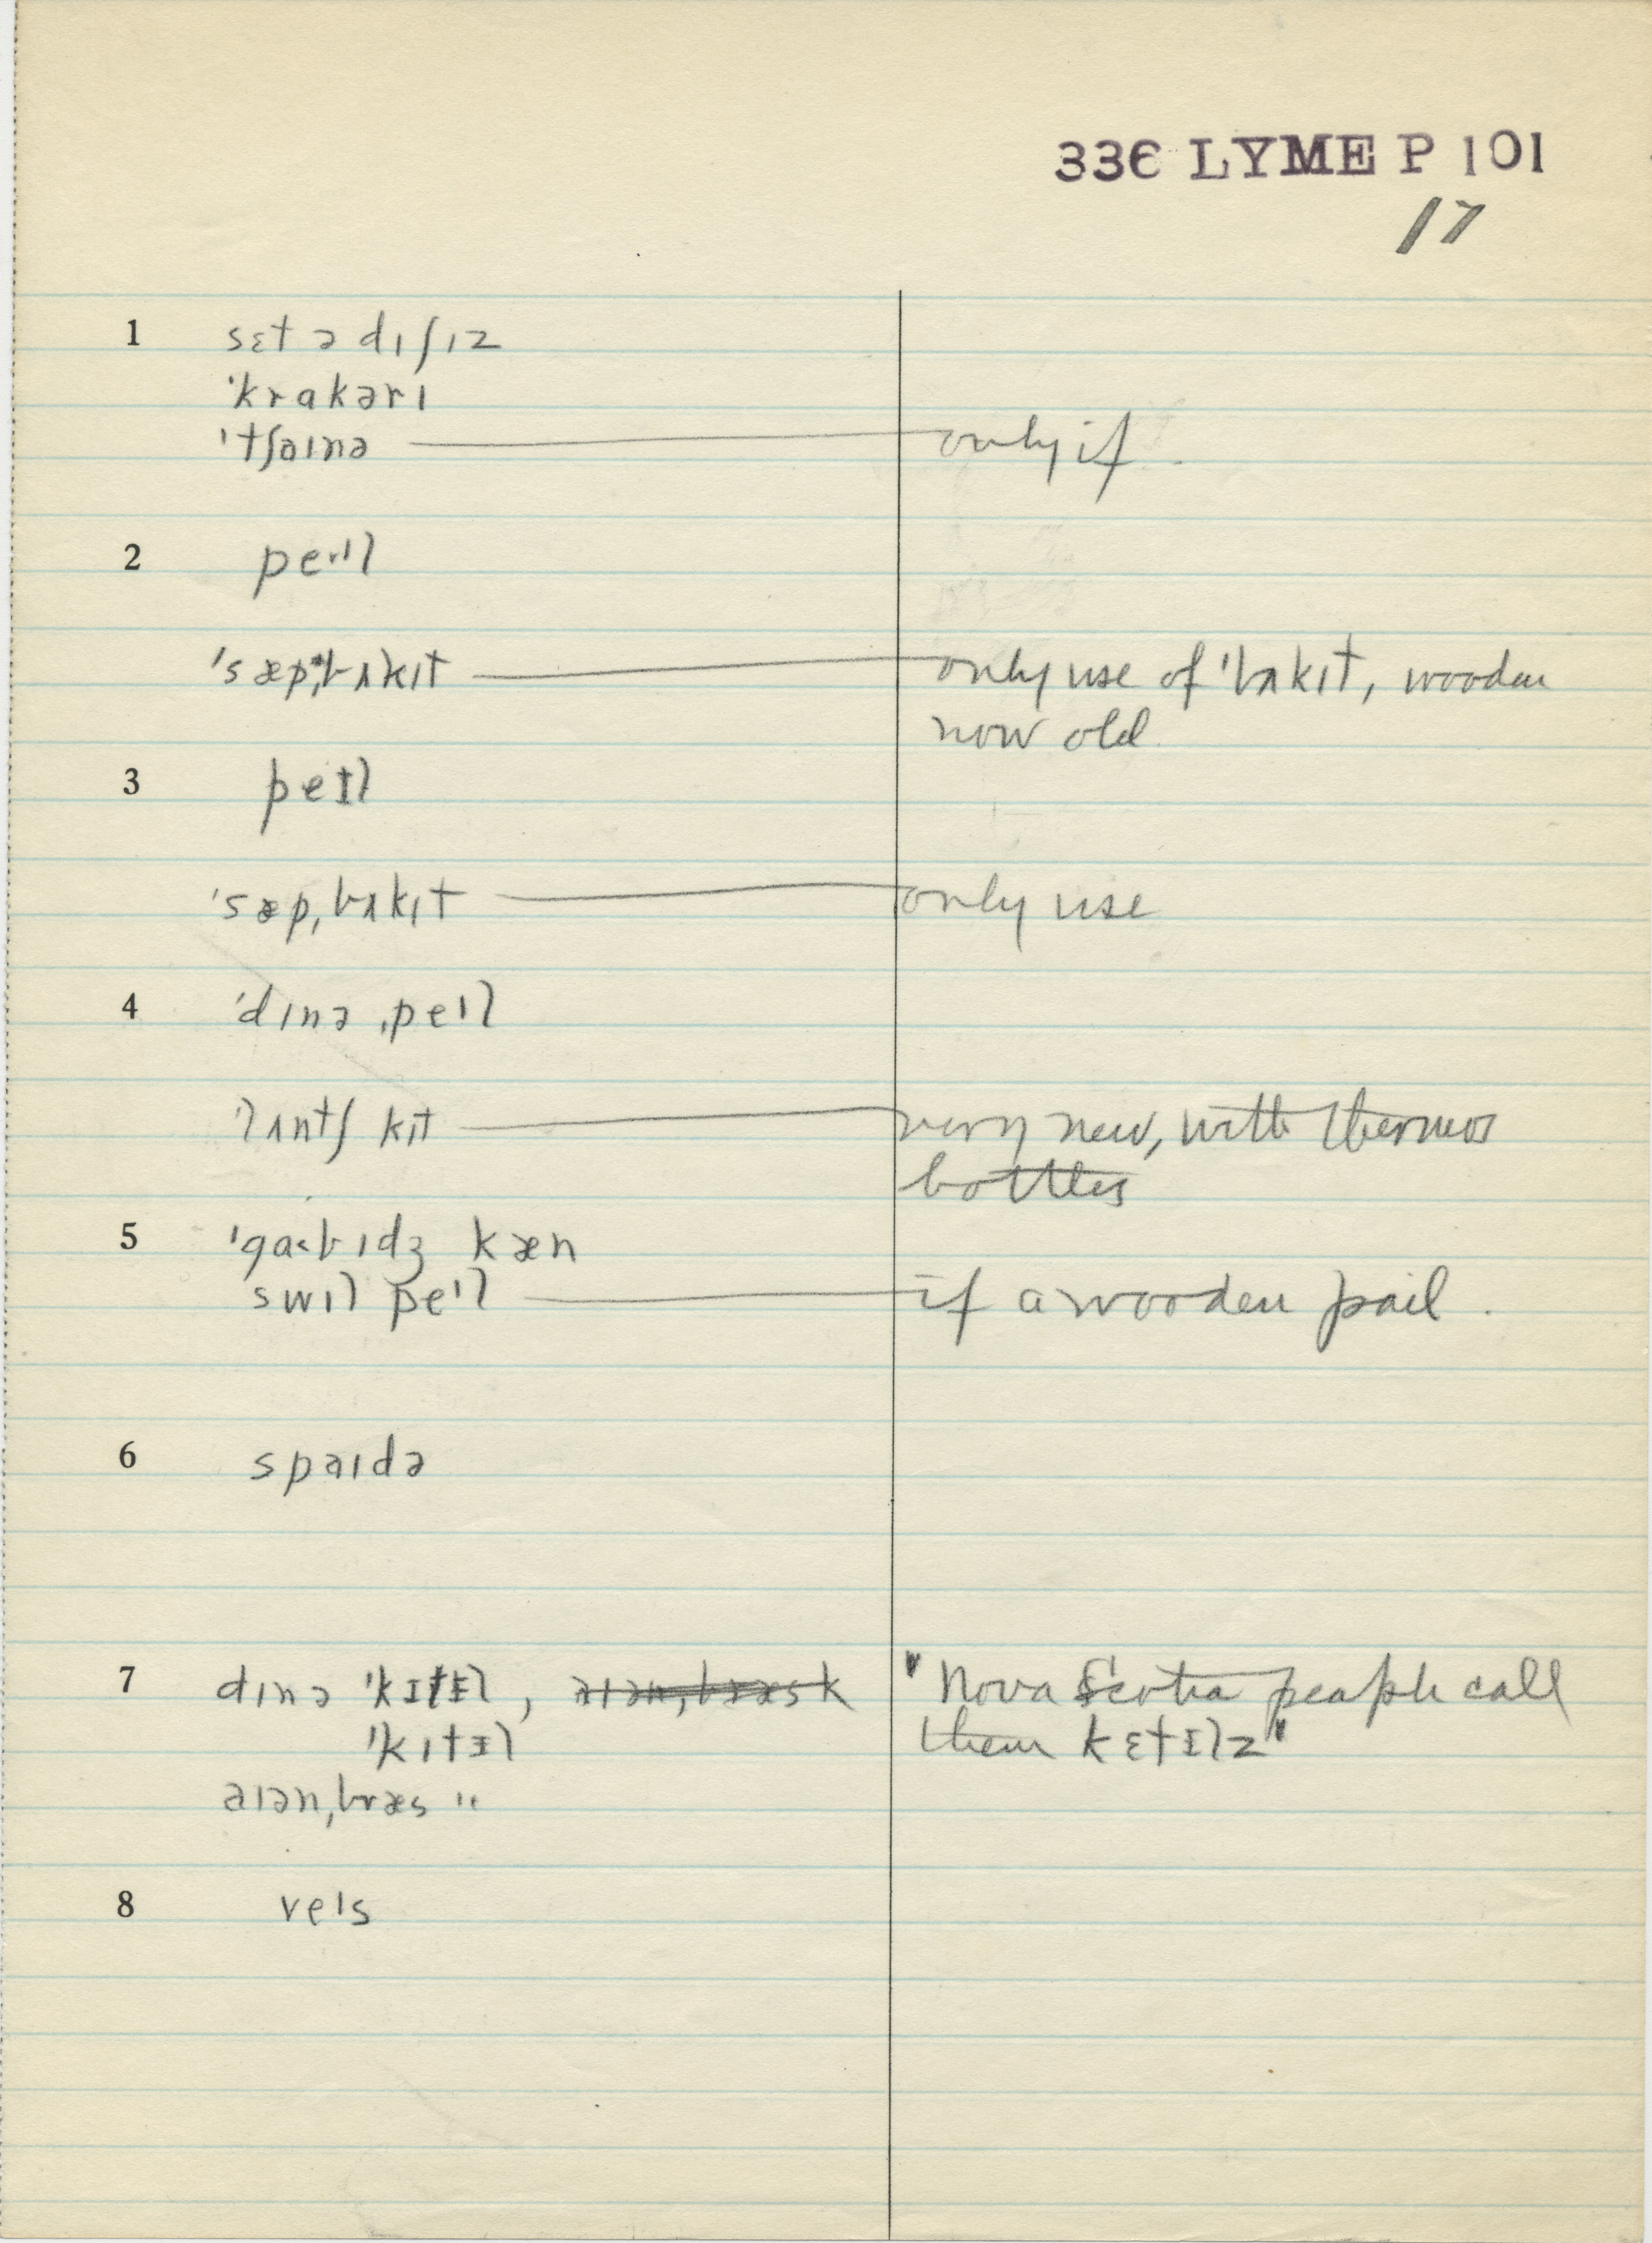 336 LYME P 101
17
1 sɛt ə dɪʃɪz
ˈkrɑkərɪ
ˈtʃaɪnə — only if
2 peɪl
ˈsæpˌbʌkɪt — only use of ˈbʌkɪt, wooden
now old
3 peɪl
ˈsæpˌbʌkɪt — only use
4 ˈdɪnəˌpeɪl
lʌntʃ kɪt — very new, with thermos
bottles
5 ˈga˂bɪdʒ kæn
swɪl peɪl — if a wooden pail.
6 spaɪdə
7 dɪnə ˈkɪtɪl, "Nova Scotia people call
ˈkɪtɪl them kɛtɪlz"
aɪən, bræs "
8 veɪs